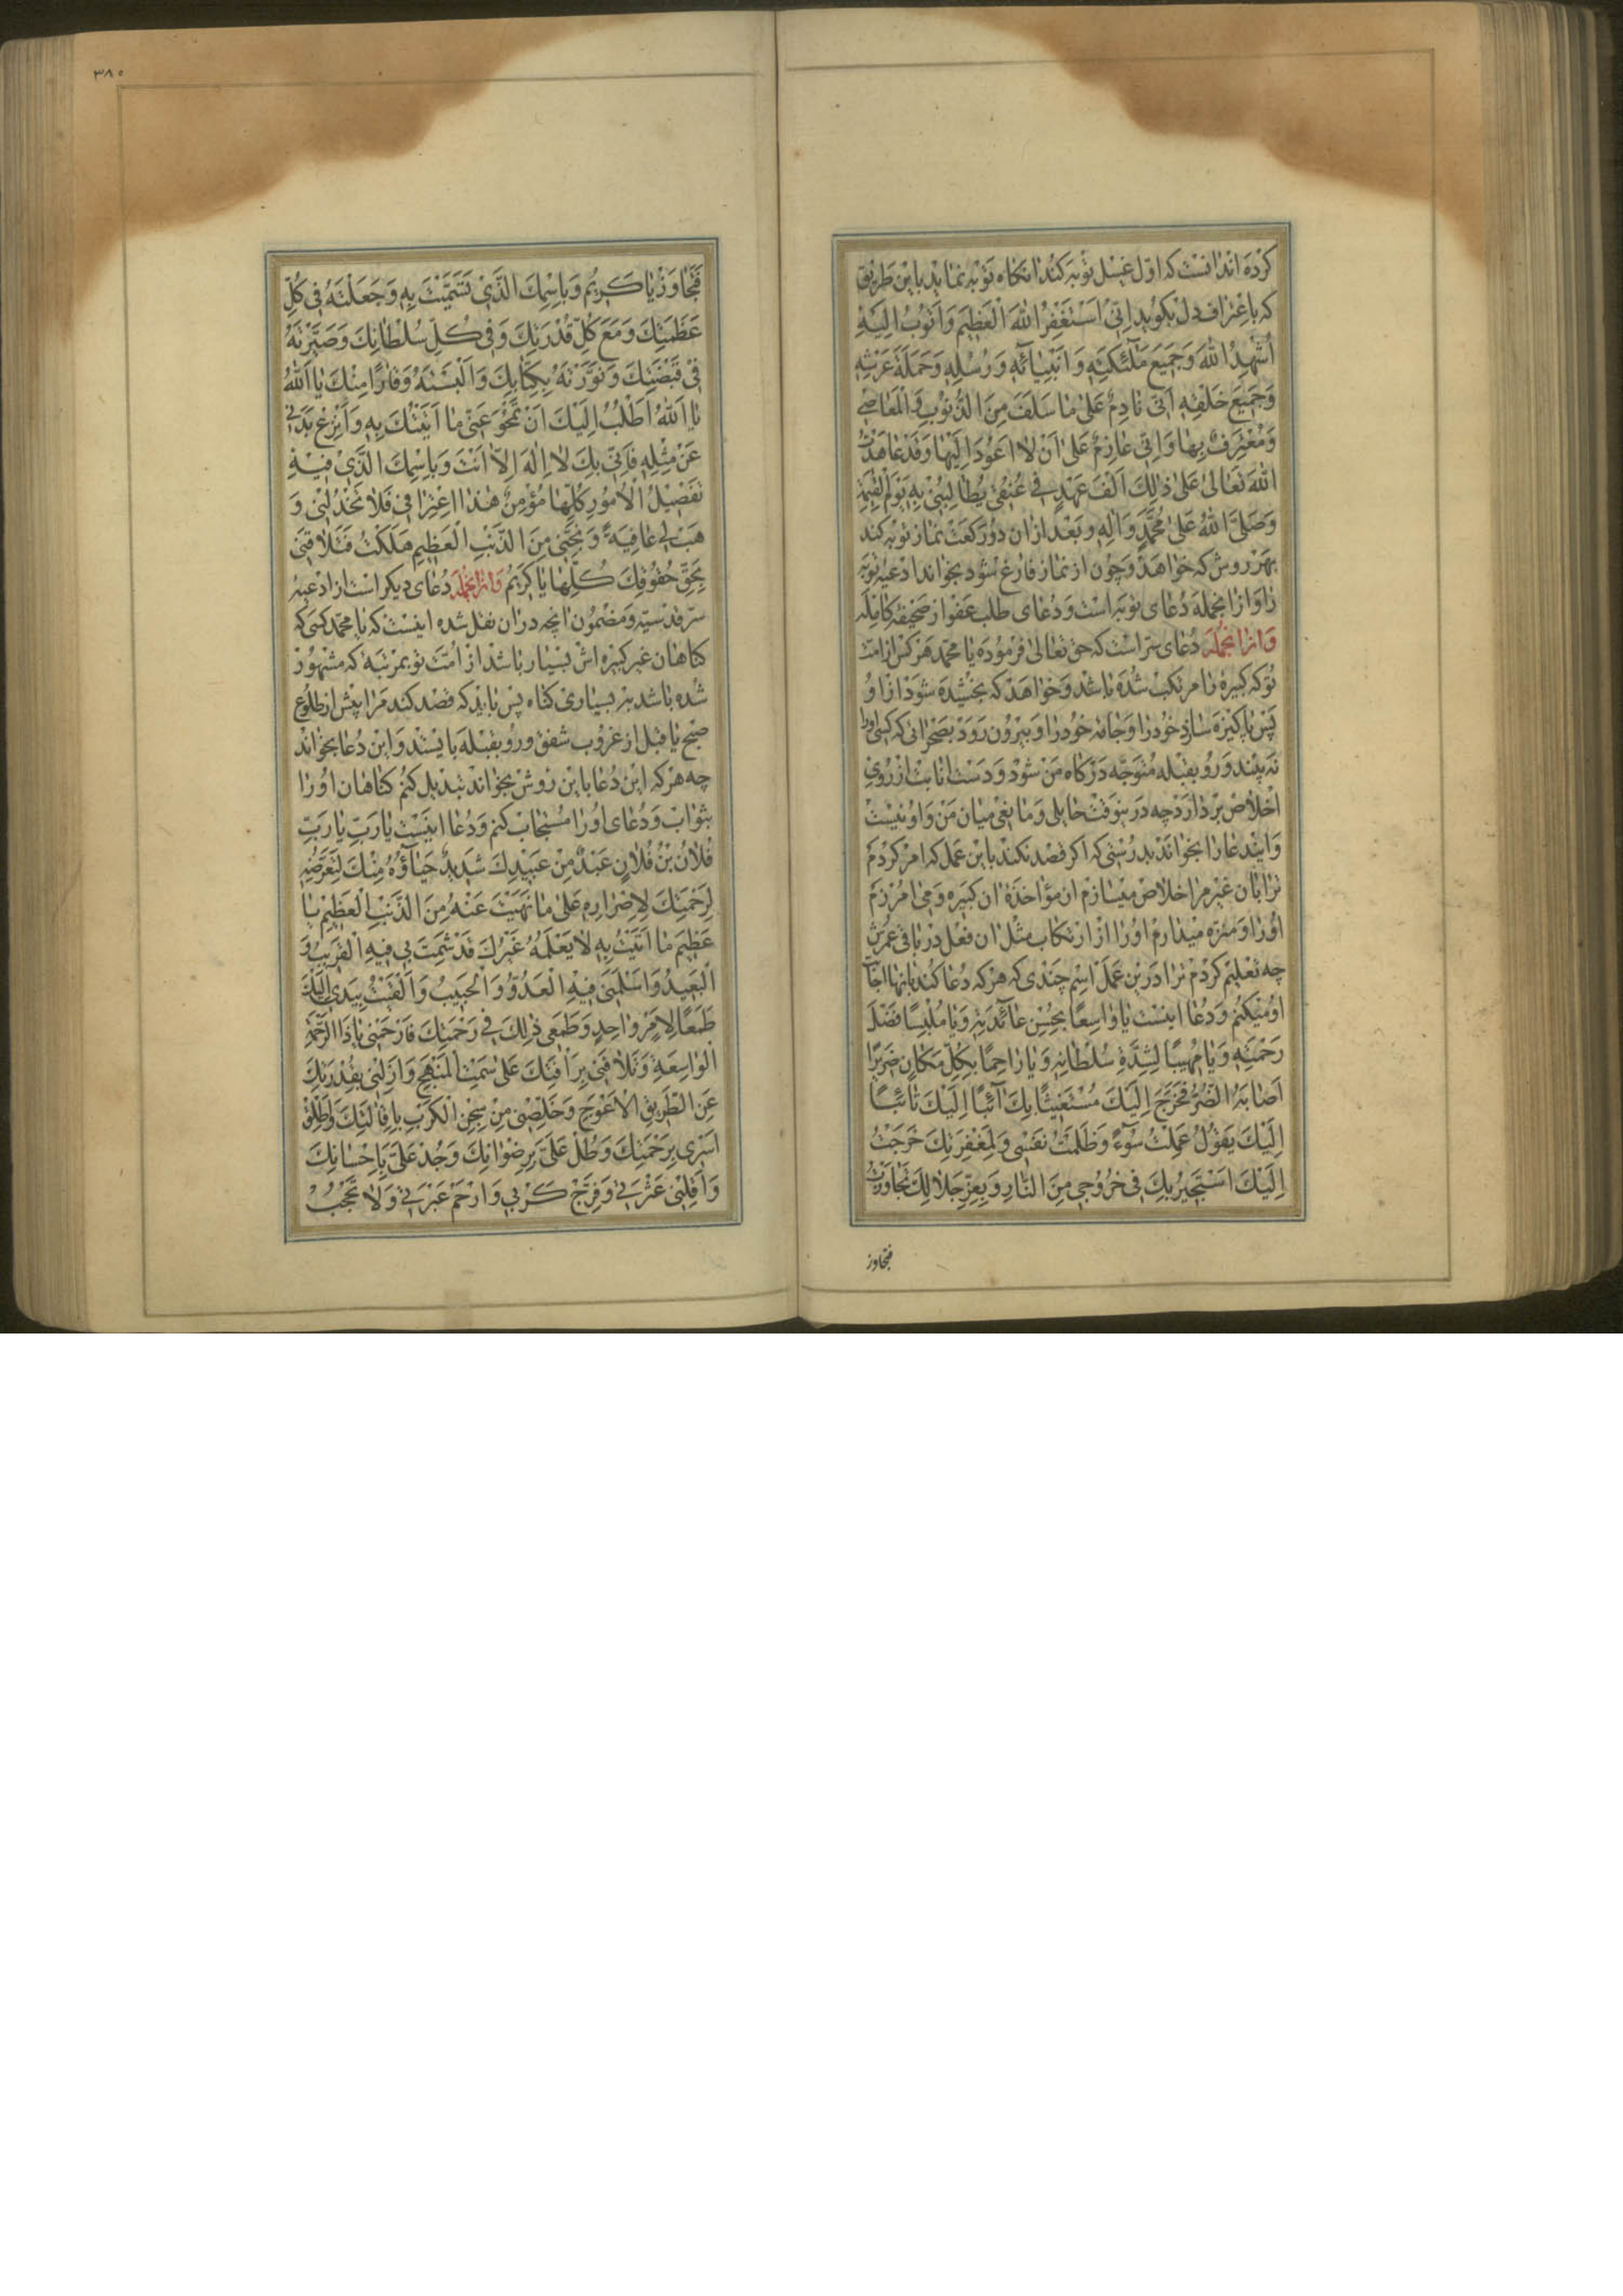 کرده اند انست که اول غسل توبه کند انکاه توبه نماید باین طریق
که باعتراف دل بکوید اِنّی اَسْتَغْفِرُ اللّٰهَ الْعَظیمَ وَ اَتُوبُ اِلَیْهِ
اُشْهِدُ اللّٰهَ وَجَمیعَ مَلٰٓئِکَتِهِ وَ اَنْبِیٰائِهِ وَ رُسُلِهِ وَحَمَلَةَ عَرْشِهِ
وَجَمیعَ خَلْقِهِ اَنّی نٰادِمٌ عَلیٰ مٰا سَلَفَ مِنَ الذُّنُوبِ وَ الْمَعٰاصی
وَمُعْتَرِفٌ بِهٰا وَ اِنّی عٰازِمٌ عَلیٰ اَنْ لٰا اَعُودَ اِلَیْهٰا وَقَدْ عٰاهَدْتُ
اللّٰهَ تَعٰالیٰ عَلیٰ ذٰلِکَ اَلْفَ عَهْدٍ فی عُنُقی یُطٰالِبُنی بِهِ یَوْمَ الْقِیٰمَةِ
وَصَلَّی اللّٰهُ عَلیٰ مُحَمَّدٍ وَ اٰلِهِ و بعد از ان دو رکعت نماز توبه کند
بهر روش که خواهد و چون از نماز فارغ شود بخواند ادعیه توبه
را و ازانجمله دعای توبه است و دعای طلب عفو از صحیفه کامله
وازانجمله دعای سر است که حق تعالی فرموده یا محمد هر کس از امت
تو که کبیره را مرتکب شده باشد و خواهد که بخشیده شود از او
پس پاکیزه سازد خود را و جامه خود را و بیرون رود بصحرائی که کسی اورا
نه بیند و رو بقبله متوجه درکاه من شود و دست انابت از روی
اخلاص بردارد چه درینوقت حایلی و مانعی میان من و او نیست
و ایندعا را بخواند بدرستی که اکر قصد نکند باین عمل که امر کردم
ترا بان غیر مرا خلاص میسازم از مؤاخذه ان کبیره و می امرزم
اورا و منزه میدارم اورا از ارتکاب مثل ان فعل در باقی عمرش
چه تعلیم کردم ترا درین عمل اسم چندی که هرکه دعا کند بانها اجابت
او میکنم و دعا اینست یٰا وٰاسِعًا بِحُسْنِ عٰائِدَتِهِ وَیٰا مُلْبِسًا فَضْلَ
رَحْمَتِهِ وَیٰا مُهیبًا لِشِدَّةِ سُلْطٰانِهِ وَیٰا رٰاحِمًا بِکُلِّ مَکٰانٍ ضَریرًا
اَصٰابَهُ الضُّرُّ فَخَرَجَ اِلَیْکَ مُسْتَغیثًا بِکَ اٰئِبًا اِلَیْکَ تٰائِبًا
اِلَیْکَ یَقُولُ عَمِلْتُ سُوٓءً وَظَلَمْتُ نَفْسی وَلِمَغْفِرَتِکَ خَرَجْتُ
اِلَیْکَ اَسْتَجیرُ بِکَ فی خُرُوجی مِنَ النّٰارِ وَبِعِزِّ جَلٰالِکَ تَجٰاوَزْتُ
فتجاوز
۳۸۵
فَتَجٰاوَزْ یٰا کَریمُ وَبِاسْمِکَ الَّذی تَسَمَّیْتَ بِهِ وَجَعَلْتَهُ فی کُلِّ
عَظَمَتِکَ وَمَعَ کُلِّ قُدْرَتِکَ وَفی کُلِّ سُلْطٰانِکَ وَصَیَّرْتَهُ
فی قَبْضَتِکَ وَنَوَّرْتَهُ بِکِتٰابِکَ وَاَلْبَسْتَهُ وَقٰارًا مِنْکَ یٰا اَللّٰهُ
یٰا اَللّٰهُ اَطْلُبُ اِلَیْکَ اَنْ تَمْحُوَ عَنّی مٰا اَتَیْتُکَ بِهِ وَاَنْزِعْ بَدَنی
عَنْ مِثْلِهِ فَاِنّی بِکَ لٰا اِلٰهَ اِلّٰا اَنْتَ وَبِاسْمِکَ الَّذی فیهِ
تَفْصیلُ الْاُمُورِ کُلِّهٰا مُؤْمِنٌ هٰذَا اعْتِرٰافی فَلٰا تَخْذُلْنی وَ
هَبْ لی عٰافِیَةً وَ نَجِّنی مِنَ الذَّنْبِ الْعَظیمِ هَلَکْتُ فَتَلٰافَنی
بِحَقِّ حُقُوقِکَ کُلِّهٰا یٰا کَریمُ وازانجمله دعای دیکر است از ادعیه
سر قدسیه و مضمون انچه دران نقل شده اینست که یا محمد کسی که
کناهان غیر کبیره اش بسیار باشد از امت تو بمرتبه که مشهور
شده باشد بر بسیاری کناه پس باید که قصد کند مرا پیش از طلوع
صبح یا قبل از غروب شفق و رو بقبله بایستد و این دعا بخواند
چه هرکه این دعا باین روش بخواند تبدیل کنم کناهان اورا
بثواب و دعای اورا مستجاب کنم و دعا اینست یٰا رَبِّ یٰا رَبِّ
فُلٰانُ بْنُ فُلٰانٍ عَبْدٌ مِنْ عَبیدِکَ شَدیدٌ حَیٰآؤُهُ مِنْکَ لِتَعَرُّضِهِ
لِرَحْمَتِکَ لِاِصْرٰارِهِ عَلیٰ مٰا نَهَیْتَ عَنْهُ مِنَ الذَّنْبِ الْعَظیمِ یٰا
عَظیمَ مٰا اَتَیْتُ بِهِ لٰا یَعْلَمُهُ غَیْرُکَ قَدْ شَمِتَ بی فیهِ الْقَریبُ وَ
الْبَعیدُ وَاَسْلَمَنی فیهِ الْعَدُوُّ وَ الْحَبیبُ وَاَلْقَیْتُ بِیَدی اِلَیْکَ
طَمَعًا لِاَمْرٍ وٰاحِدٍ وَطَمَعی ذٰلِکَ فی رَحْمَتِکَ فَارْحَمْنی یٰا ذَا الرَّحْمَةِ
الْوٰاسِعَةِ وَتَلٰافَنی بِرَأْفَتِکَ عَلیٰ سَمْتِ الْمَنْهَجِ وَ اَزِلْنی بِقُدْرَتِکَ
عَنِ الطَّریقِ الْاَعْوَجِ وَخَلِّصْنی مِنْ سِجْنِ الْکَرْبِ بِاِقٰالَتِکَ وَاَطْلِقْ
اَسْری بِرَحْمَتِکَ وَطُلْ عَلَیَّ بِرِضْوٰانِکَ وَجُدْ عَلَیَّ بِاِحْسٰانِکَ
وَاَقِلْنی عَثْرَتی وَفَرِّجْ کَرْبی وَارْحَمْ عَبْرَتی وَلٰا تَحْجُبْ